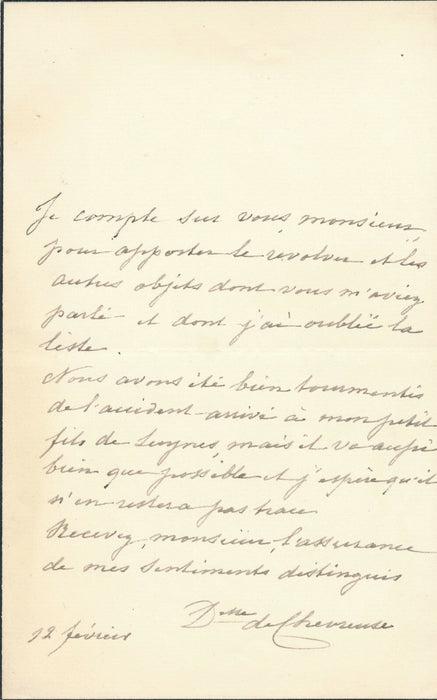 Je compte sur vous, monsieur,
pour apporter le revolver et les
autres objets dont vous m'aviez
parlé et dont j'ai oublié la
liste.
Nous avons été bien tourmentés
de l'accident arrivé à mon petit
fils de Luynes, mais il va aussi
bien que possible et j'espère qu'il
n'en restera pas trace
Recevez, monsieur, l'assurance
de mes sentiments distingués
Dsse de Chevreuse
12 février